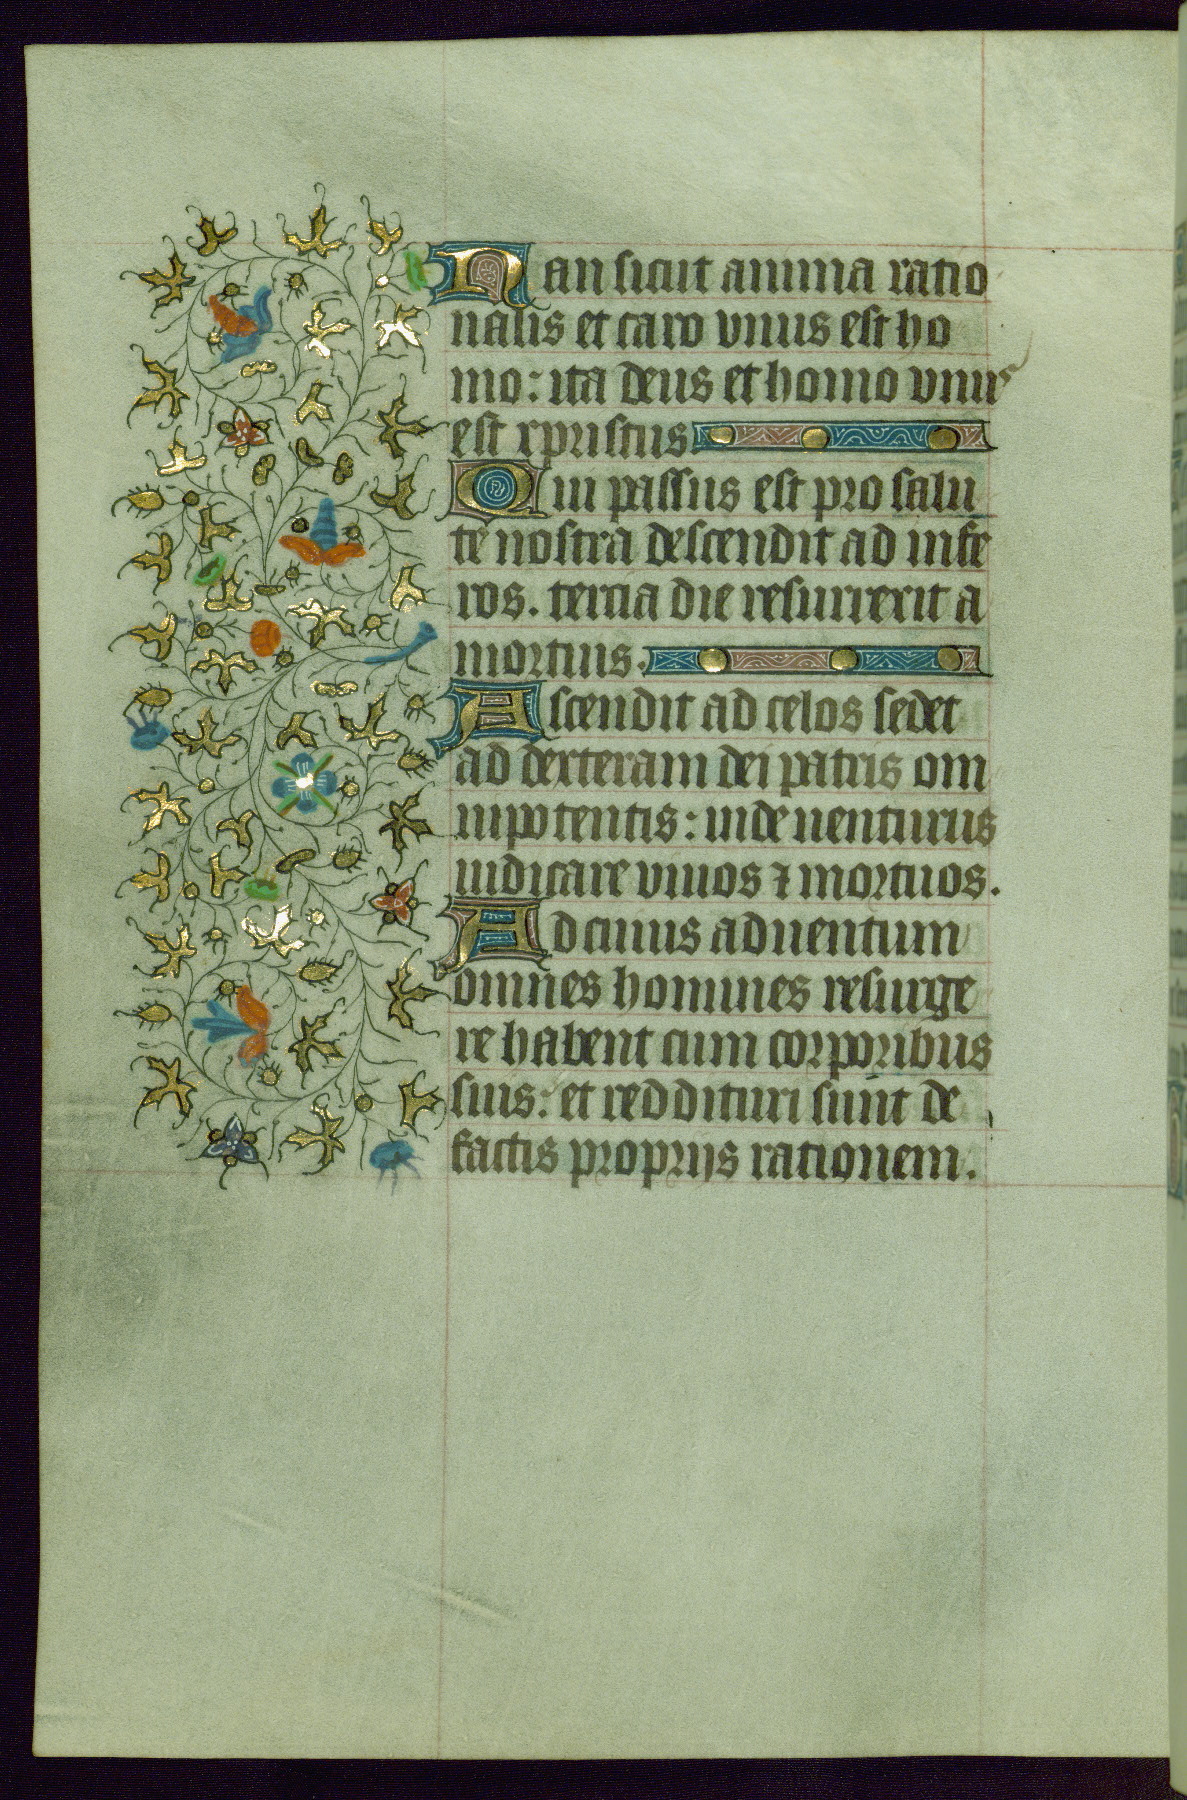 Nan sicut anima ratio
nalis et caro vnus est ho
mo: ita deus et homo vnus
est xpristus.
Qui passus est pro salu
te nostra descendit ad infe
ros. tercia die resurrexit a
mortuis.
Ascendit ad celos sedet
ad dexteram dei patris om
nipotentis: inde uenturus
iudicare viuos ⁊ mortuos.
Ad cuius aduentum
omnes homines resurge
re habent cum corporibus
suis: et reddituri sunt de
factis proprijs rationem.